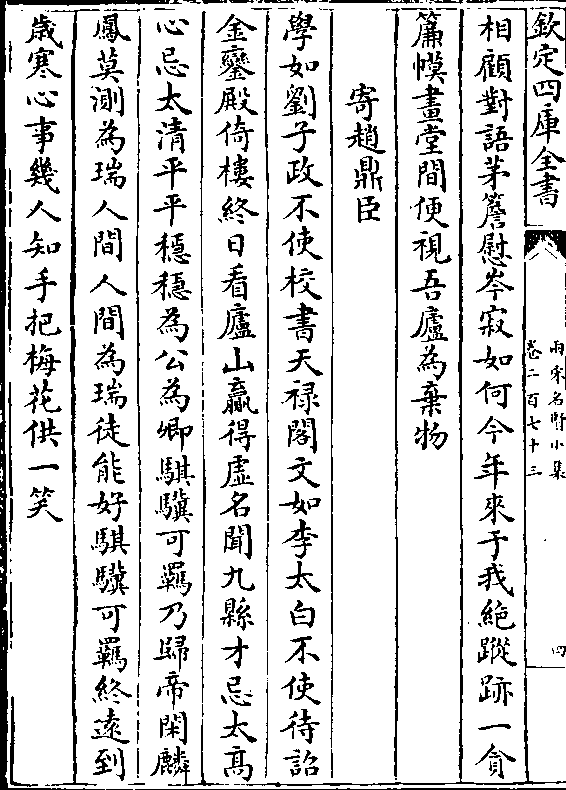 欽定四庫全書
兩宋名賢小集
卷二百七十三
四
相顧對語茅簷慰岑寂如何今年來于我絶蹤跡一貪
簾幙畫堂間便視吾廬為棄物
寄趙鼎臣
學如劉子政不使校書天禄閣文如李太白不使待詔
金鑾殿倚樓終日看廬山贏得虛名聞九縣才忌太高
心忌太清平平穩穩為公為卿騏驥可羈乃歸帝閑麟
鳳莫測為瑞人間人間為瑞徒能好騏驥可羈終遠到
歲寒心事幾人知手把梅花供一笑